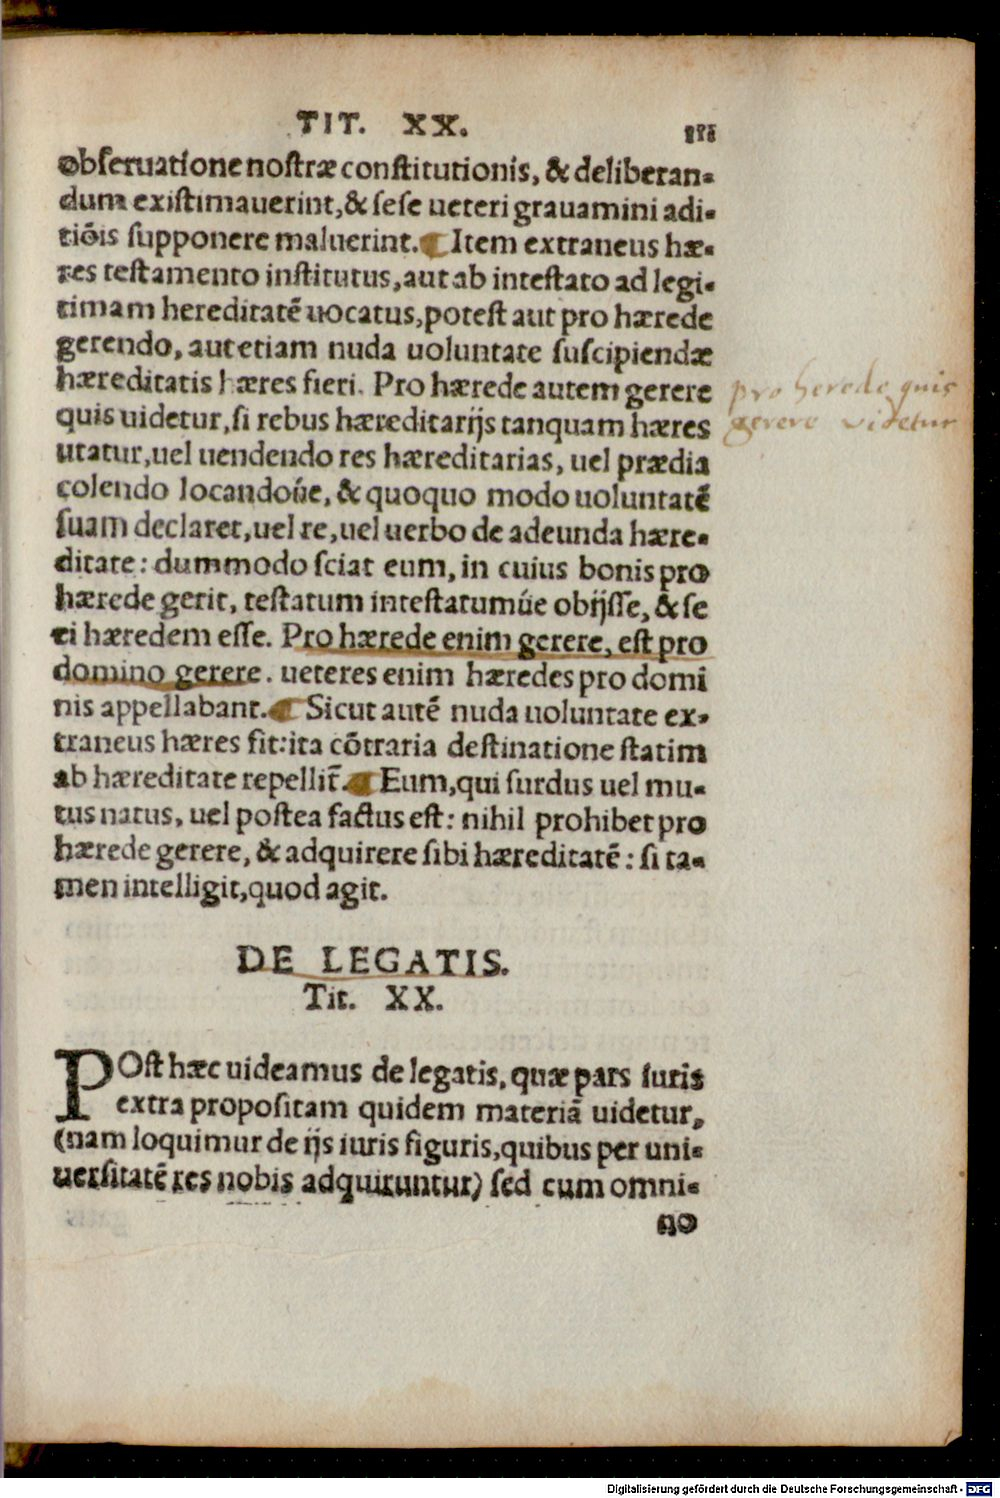 TIT. XX.
obſeruatione noſtræ conſtitutionis, & deliberan-
dum exiſtimauerint, & ſeſe ueteri grauamini adi-
tiōis ſupponere maluerint. ¶ Item extraneus hæ-
res teſtamento inſtitutus, aut ab inteſtato ad legi-
timam hereditatē uocatus, poteſt aut pro hærede
gerendo, aut etiam nuda uoluntate ſuſcipiendæ
hæreditatis hæres fieri. Pro hærede autem gerere
quis uidetur, ſi rebus hæreditarijs tanquam hæres
utatur, uel uendendo res hæreditarias, uel prædia
colendo locandoúe, & quoquo modo uoluntatē
ſuam declaret, uel re, uel uerbo de adeunda hære-
ditate: dummodo ſciat eum, in cuius bonis pro
hærede gerit, teſtatum inteſtatumúe obijſſe, & ſe
ei hæredem eſſe. Pro hærede enim gerere, eſt pro
domino gerere. ueteres enim hæredes pro domi
nis appellabant. ¶ Sicut autē nuda uoluntate ex-
traneus hæres fit: ita cōtraria deſtinatione ſtatim
ab hæreditate repellit̄. ¶ Eum, qui ſurdus uel mu-
tus natus, uel poſtea factus eſt: nihil prohibet pro
hærede gerere, & adquirere ſibi hæreditatē: ſi ta-
men intelligit, quod agit.
pro herede quis
gerere videtur
DE LEGATIS.
Tit. XX.
POſt hæc uideamus de legatis, quæ pars iuris
extra propoſitam quidem materiā uidetur,
(nam loquimur de ijs iuris figuris, quibus per uni-
uerſitatē res nobis adquiruntur) ſed cum omni-
no
Digitalisierung gefördert durch die Deutsche Forschungsgemeinschaft - DFG